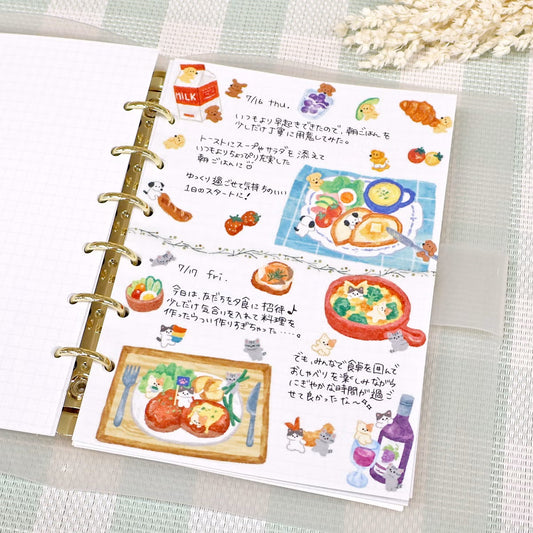 MILK
7/16 thu.
いつもより早起きできたので、朝ごはんを
少しだけ丁寧に用意してみた。
トーストにスープやサラダを添えて
いつもよりちょっぴり充実した
朝ごはんに
ゆっくり過ごせて気持ちのいい
1日のスタートに!
7/17 fri.
今日は、友だちを夕食に招待♪
少しだけ気合いを入れて料理を
作ったらつい作りすぎちゃった……。
でも、みんなで食卓を囲んで
おしゃべりを楽しみながら
にぎやかな時間が過ご
せて良かったな〜